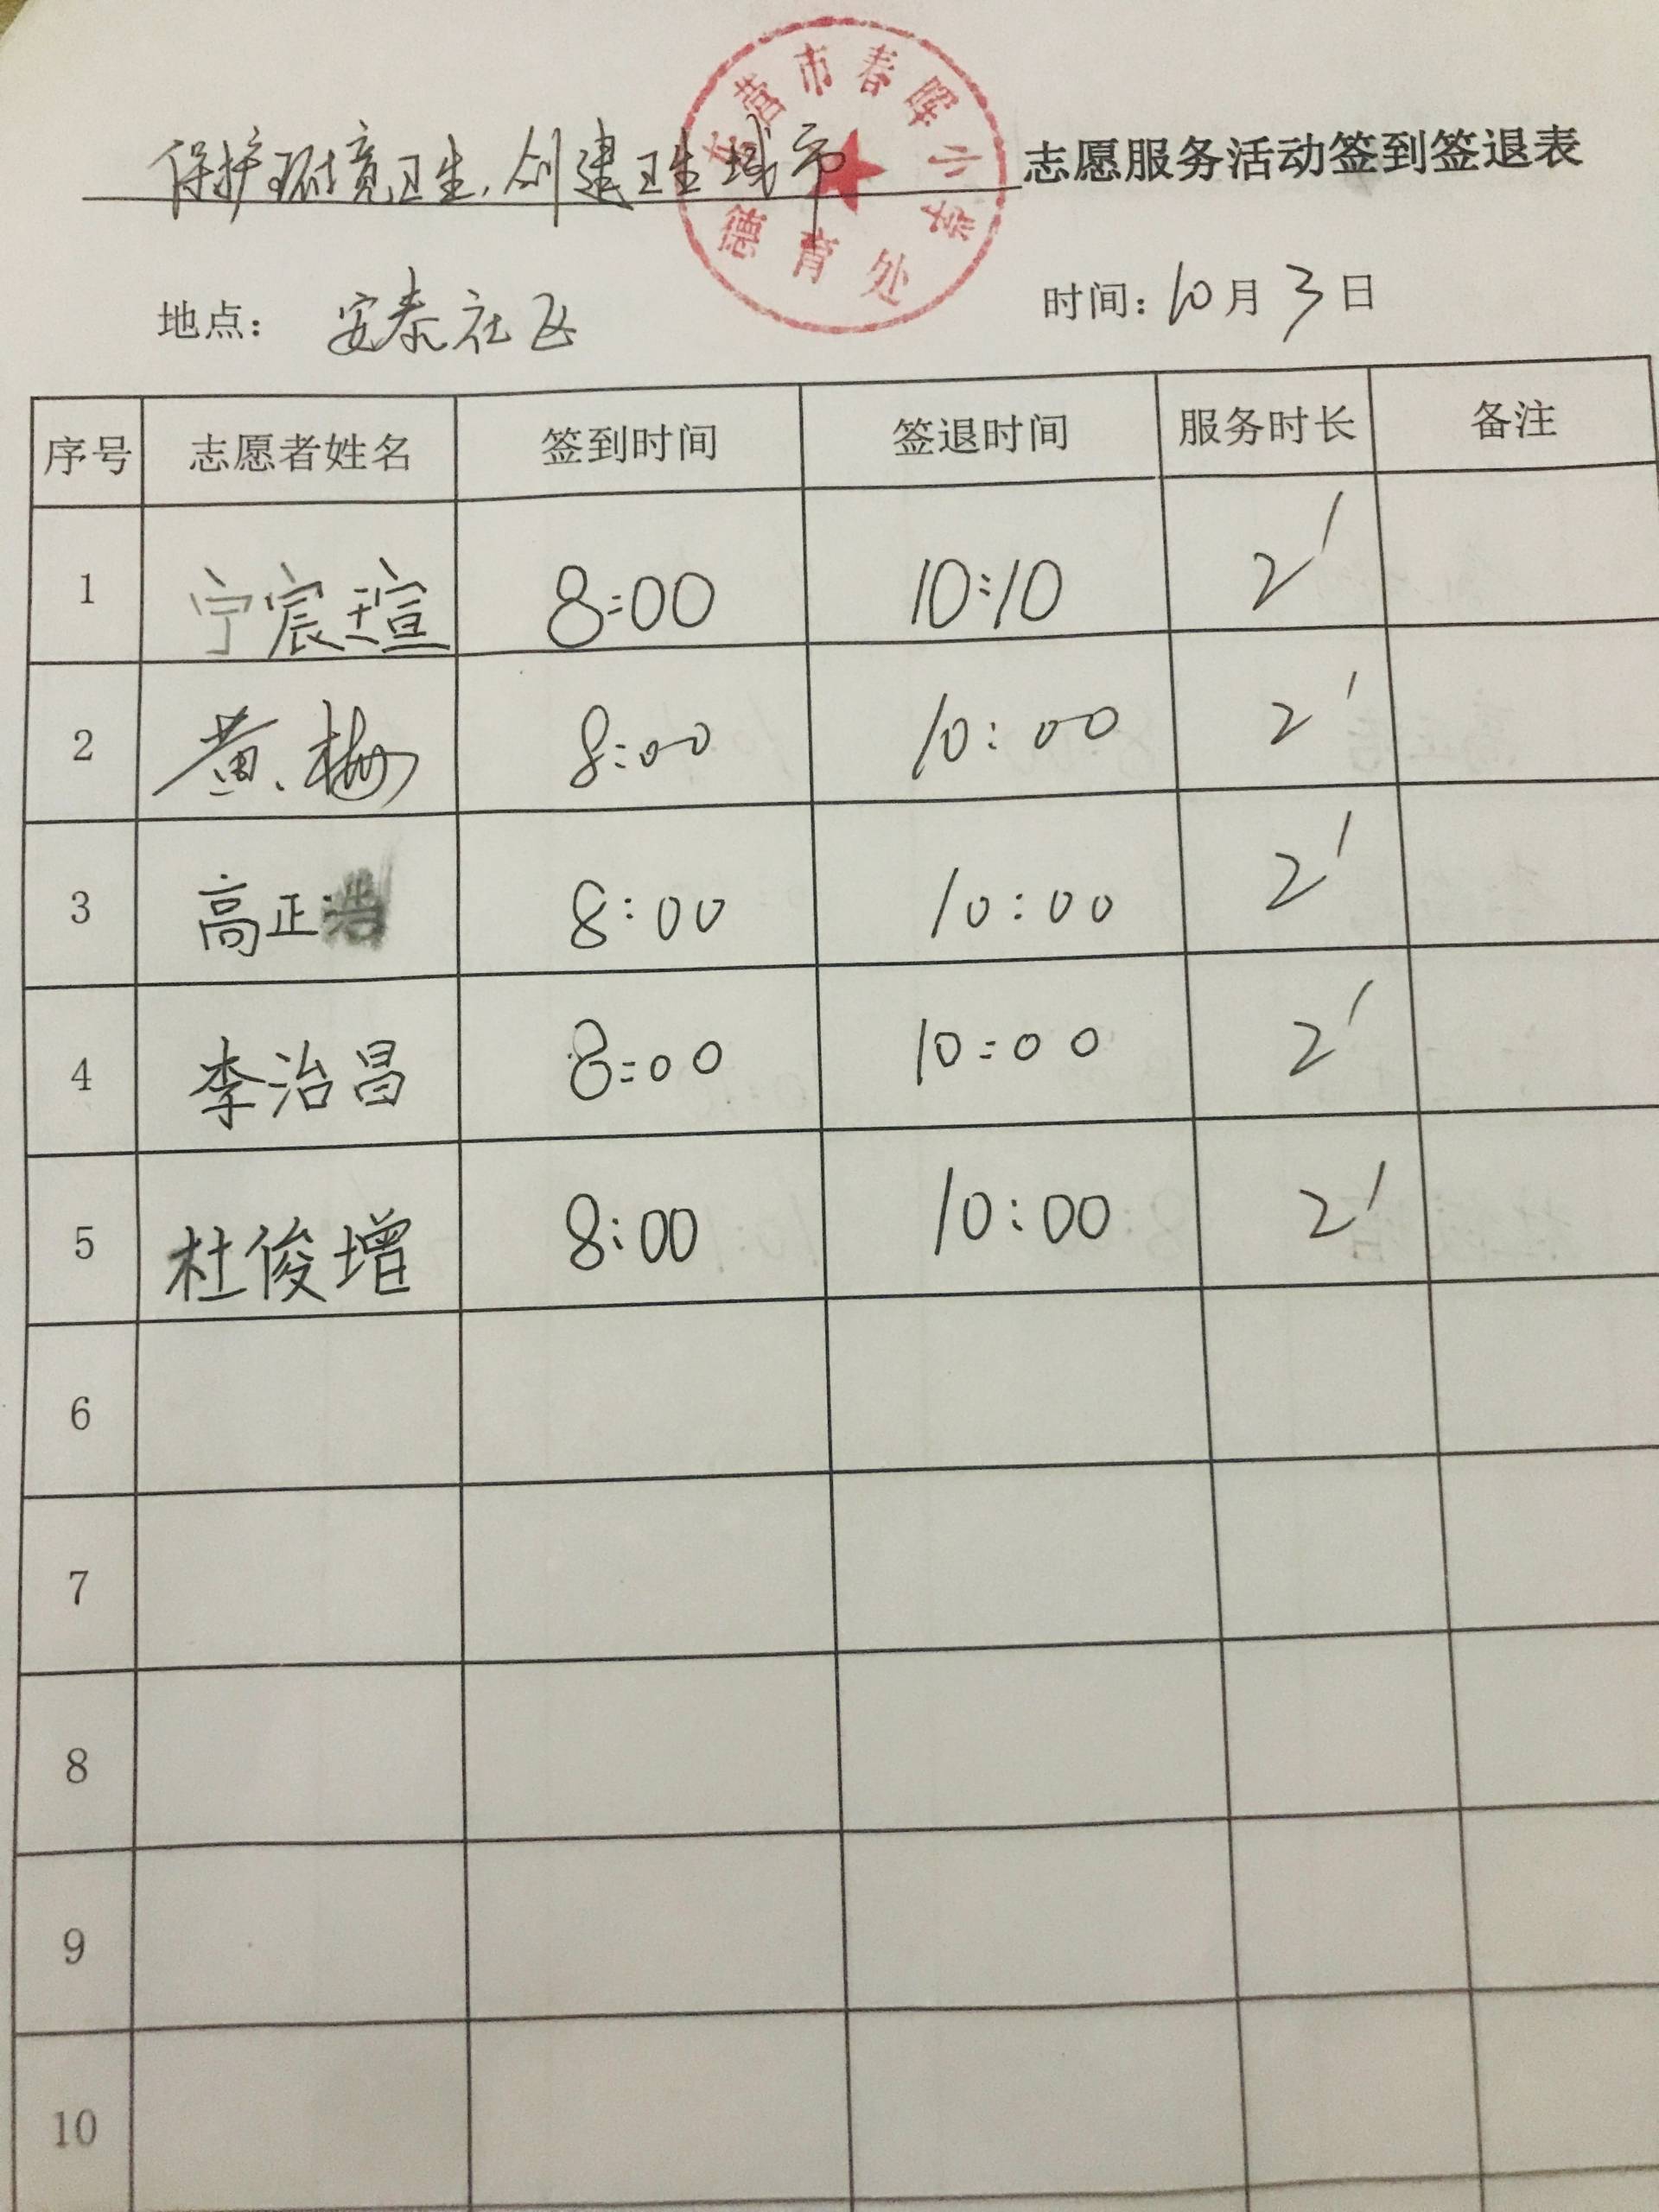 东营市春晖小学
德育处
保护环境卫生,创建卫生城市 志愿服务活动签到签退表
地点: 安泰社区 时间: 10月3日
序号 志愿者姓名 签到时间 签退时间 服务时长 备注
1 宁宸瑄 8:00 10:10 2'
2 黄梅 8:00 10:00 2'
3 高正浩 8:00 10:00 2'
4 李治昌 8:00 10:00 2'
5 杜俊增 8:00 10:00 2'
6
7
8
9
10